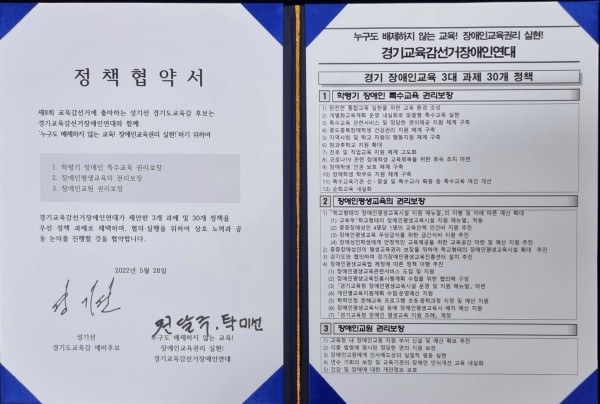 정 책 협 약 서
제8회 교육감선거에 출마하는 성기선 경기도교육감 후보는
경기교육감선거장애인연대와 함께
'누구도 배제하지 않는 교육! 장애인교육권리 실현!'하기 위하여
1. 학령기 장애인 특수교육 권리보장
2. 장애인평생교육의 권리보장
3. 장애인교원 권리보장
경기교육감선거장애인연대가 제안한 3개 과제 및 30개 정책을
우선 정책 과제로 채택하며, 협의·실행을 위하여 상호 노력과 공
동 논의를 진행할 것을 협약합니다.
2022년 5월 28일
성기선
경기도교육감 예비후보
누구도 배제하지 않는 교육!
장애인교육권리 실현!
경기교육감선거장애인연대
누구도 배제하지 않는 교육! 장애인교육권리 실현!
경기교육감선거장애인연대
경기 장애인교육 3대 과제 30개 정책
1 학령기 장애인 특수교육 권리보장
1) 완전한 통합교육 실현을 위한 교육 환경 조성
2) 개별화교육계획 운영 내실화로 맞춤형 특수교육 실현
3) 특수교육 관련서비스 및 정당한 편의제공 지원 체계 구축
4) 중도중복장애학생 건강관리 지원 체계 구축
5) 지역사회 및 학교 차원의 행동지원 체계 구축
6) 방과후학교 지원 확대
7) 진로 및 직업교육 지원 체계 고도화
8) 코로나19 관련 장애학생 교육회복을 위한 후속 조치 마련
9) 장애학생 인권 보호 체계 구축
10) 장애학생 학부모 지원 체계 구축
11) 특수교육기관 신·증설 및 특수교사 확충 등 특수교육 여건 개선
12) 순회교육 내실화
2 장애인평생교육의 권리보장
1) 「학교형태의 장애인평생교육시설 지원 매뉴얼」의 이행 및 이에 따른 예산 확대
(1) 「교육부 '학교형태의 장애인평생교육시설 지원매뉴얼'」 적용
(2) 중증장애성인 4명당 1명의 교육인력 인건비 지원 추진
(3) 장애인평생교육 무상급식을 위한 급간식비 지원 추진
(4) 장애성인학생에게 안정적인 교육제공을 위한 교육공간 마련 및 예산 지원 추진
2) 중증장애성인의 평생교육 권리 보장을 위하여 학교형태의 장애인평생교육시설 확대 추진
3) 경기도와 협의하여 경기장애인평생교육진흥센터 설치 추진
4) 장애인평생교육법 제정에 따른 정책 이행 추진
(1) 장애인평생교육관련서비스 도입 및 지원
(2) 장애인평생교육진흥시행계획 수립을 위한 협의체 구성
(3) 「경기교육청 장애인평생교육시설 운영 및 지원 매뉴얼」 마련
(4) 개인별교육지원계획 수립·운영예산 지원
(5) 학력인정 문해교육 프로그램 초등중학과정 지정 및 예산 지원
(6) 장애인평생교육시설 장애인평생교육사 배치 예산 지원
(7) 「경기교육청 장애인 평생교육 지원 조례」 제정
3 장애인교원 권리보장
1) 교육청 내 장애인교원 지원 부서 신설 및 예산 확보 추진
2) 각종 법령에 명시된 정당한 편의 지원 보장
3) 장애인교원에게 인사제도상의 실질적 평등 실현
4) 연수 기회의 보장 및 교육관계자의 장애인 인식개선 교육 내실화
5) 건강 및 장애에 대한 개인정보 보호